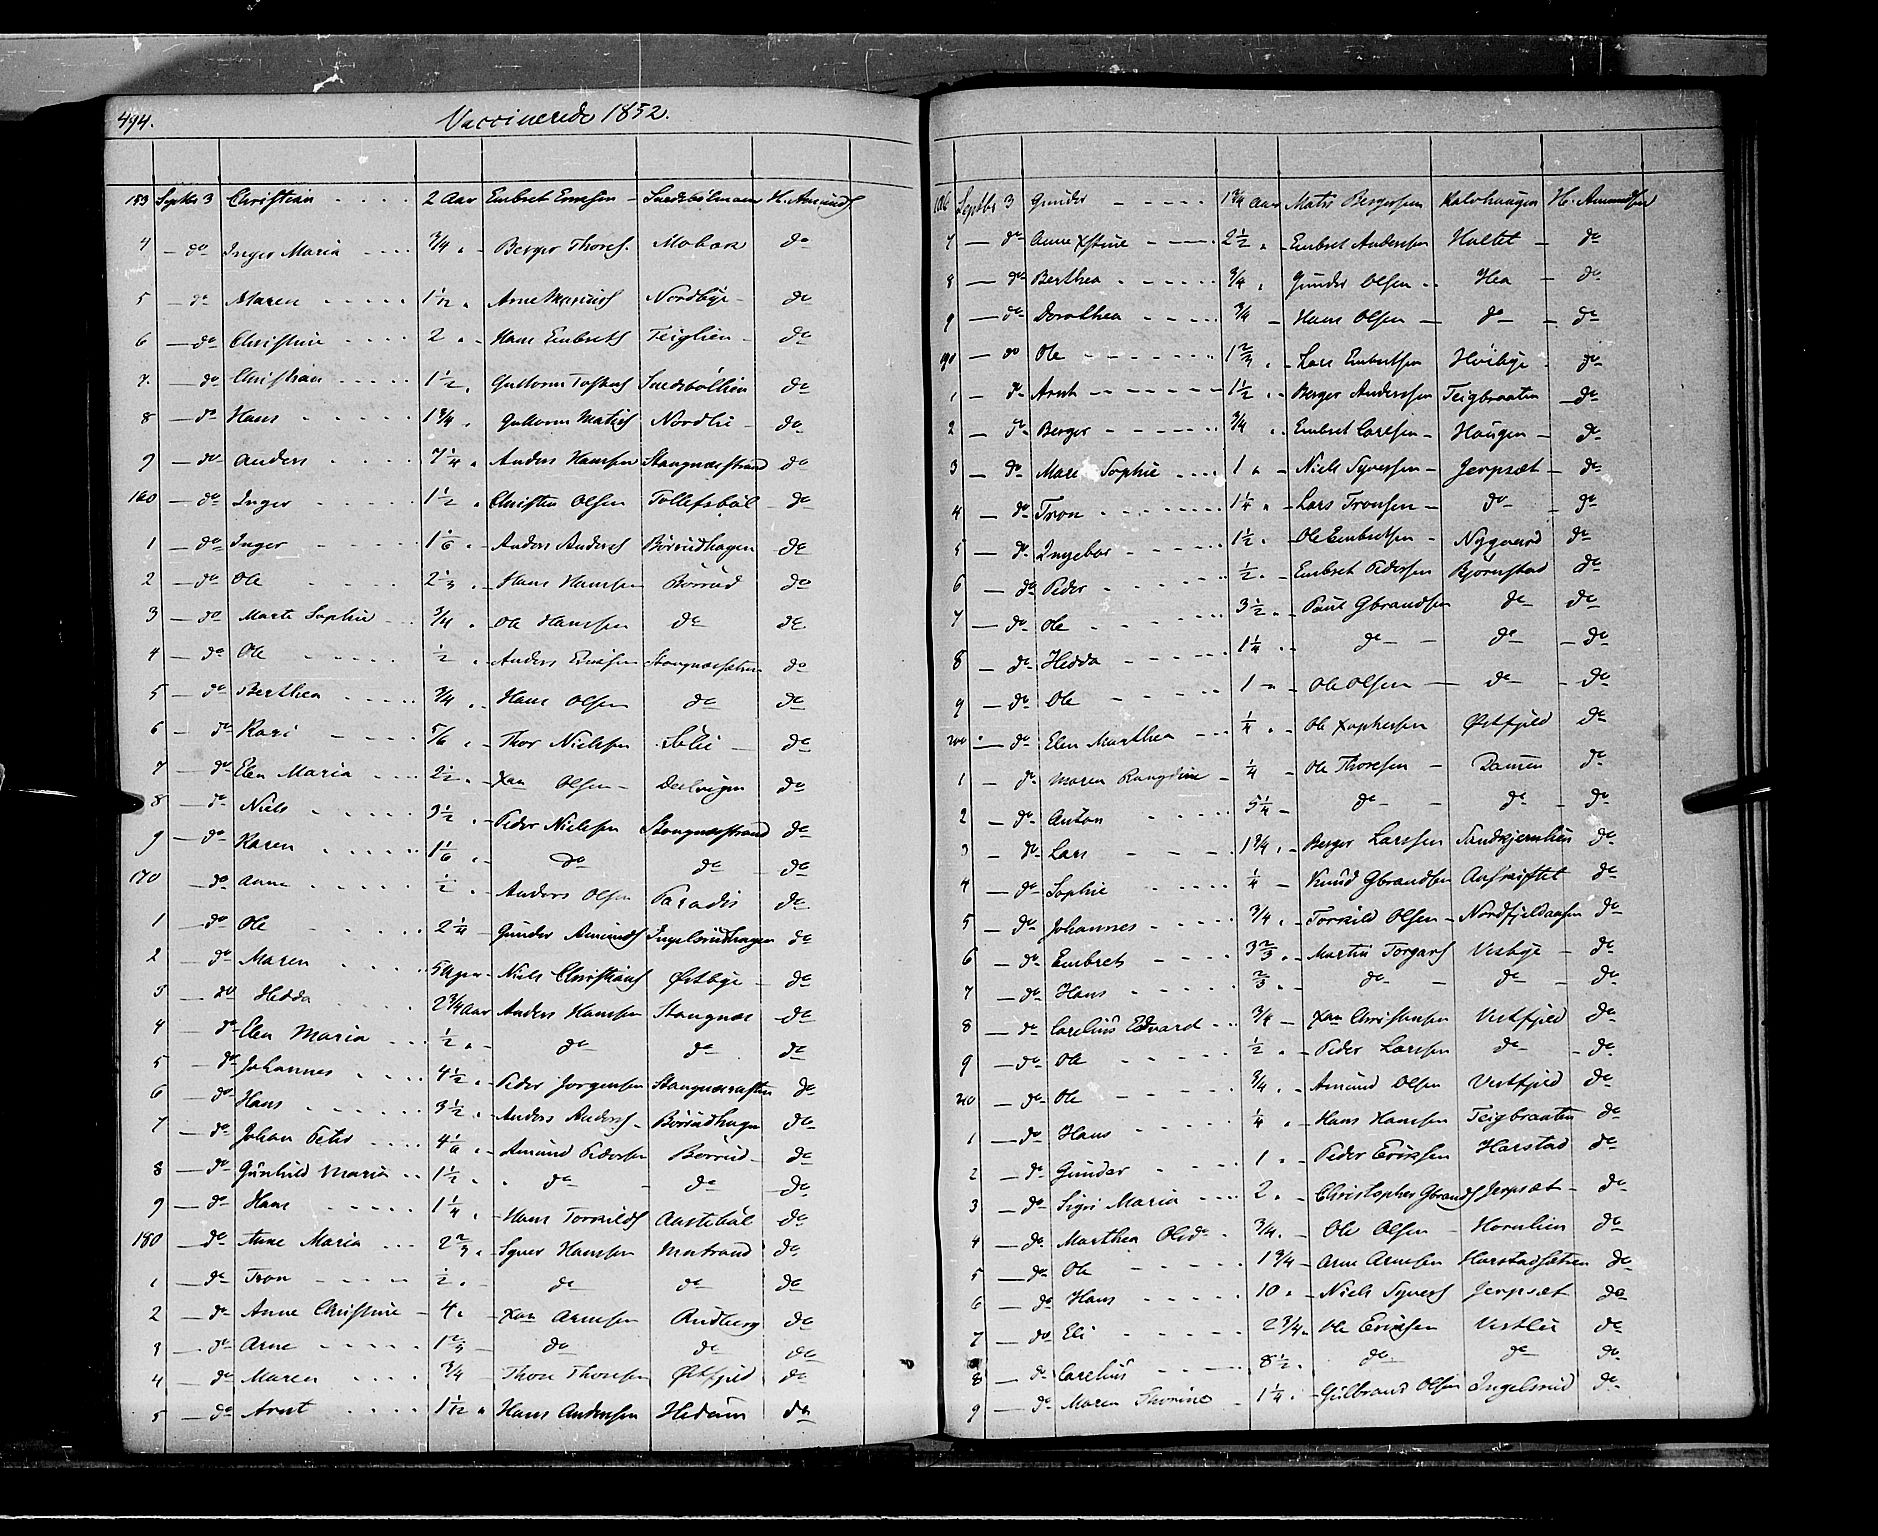 494.
Vaccinerede 1852.
153 Septbr 3 Christian 2 Aar Embret H. Amunds
4 do Inger Maria 3/4 Berger Thores. Moback do
5 do Maren 1 1/12 Arne Nordbye do
6 do Christine 2 Hans Embrets Teiglien do
7. do Christian 1 1/2 Guttorm do
8 do Hans 1 3/4 Guttorm Mathis Nordli do
9 do Anders 7 1/4 Anders Hansen Stangnæsstrand do
160 do Inger 1 1/2 Christen Olsen Tollefsböl do
1 do Inger 1 1/6 Anders Anders Börrudhagen do
2 do Ole 2 1/3 Hans Hansen Börrud do
3 do Marte Sophie 3/4 Ole Hanssen do do
4 do Ole 1/2 Anders do
5 do Berthea 3/4 Hans Olsen do do
6 do Kari 5/6 Thor Nielsen do
7 do Elen Maria 2 1/2 Xan Olsen do
8 do Niels 3 1/2 Peder Nielsen Stangnæsstrand do
9 do Karen 1 1/6 do do do
170 do Anne 1/2 Anders Olsen Paradis do
1 do Ole 2 1/4 Gunder Amunds Ingelsrudhagen do
2 do Maren 5 Uger Niels Christians Østbye do
3 do Hedda 2 3/4 Aar Anders Hanssen Stangnæs do
4 do Elen Maria 1/2 do do do
5 do Johannes 4 1/2 Peder Jörgensen do
6 do Hans 3 1/2 Anders Anders Börrudhagen do
7 do Johan Peter 4 1/6 Amund Pedersen Börrud do
8 do Gunhild Maria 1 1/2 do do do
9 do Hans 1 1/4 Hans Torkilds Aasteböl do
180 do Anne Maria 2 2/3 Syver Hanssen Matrand do
1 do Tron 1/2 do do do
2 do Anne Christine 4 Xan Arnesen Rudberg do
3 do Arne 1 2/3 do do do
4 do Maren 3/4 Thore Thoresen Østfjeld do
5 do Arnt 1 1/12 Hans Andersen Hedum do
186 Septbr 3 Gunder 1 3/4 Aar Mats Bergersen Kalvhaugen H. Amundsen
7 do Anne Xstine 2 1/2 Embret Anderssen Holtet do
8 do Berthea 3/4 Gunder Olsen Hea do
9 do Dorothea 3/4 Hans Olsen do do
190 do Ole 1 2/3 Lars Embretsen Høibye do
1 do Arnt 1 1/2 Berger Anderssen Teigbraaten do
2 do Berger 3/4 Embret Carlsen Haugen do
3 do Mare Sophie 1 Niels Syverssen Jerpsæt do
4 do Tron 1 1/4 Lars Tronsen do do
5 do Ingebor 1 1/2 Ole Embretsen Nygaard do
6 do Peder 1/2 Embret Pedersen Bjørnstad do
7 do Ole 3 1/2 Paul Gbrandsen do do
8 do Hedda 1 1/4 do do do
9 do Ole 1 Ole Olsen do do
200 do Elen Marthea 1/4 Ole Xophersen Østfjeld do
1 do Maren Rangdine 1/4 Ole Thoresen Dammen do
2 do Anton 5 1/4 do do do
3 do Lars 1 3/4 Berger Larssen Sandkjernlien do
4 do Sophie 1/4 Knud Gbrandsen do
5 do Johannes 3/4 Torkild Olsen Nordfjeldaasen do
6 do Embret 3 2/3 Martin Torgars Vestbye do
7 do Hans 2/3 do do do
8 do Carelius Edvard 3/4 Xan Christiansen Vestfjeld do
9 do Ole 1/2 Peder Larssen do do
210 do Ole 3/4 Amund Olsen Vestfjeld do
1 do Hans 1/4 Hans Hanssen Teigbraaten do
2 do Gunder 1 Peder Eriksen Harstad do
3 do Sigri Maria 2 Christopher Gbrands Jerpsæt do
4 do Marthea 3/4 Ole Olsen Hornlien do
5 do Ole 1 3/4 Arne Arnesen Harstadsætren do
6 do Hans 10 Niels Syvers Jerpsæt do
7 do Eli 2 3/4 Ole Eriksen Vestlie do
8 do Carelius 8 1/2 do do do
9 do Maren Thorine 1 1/4 Gulbrand Olsen Ingelsrud do